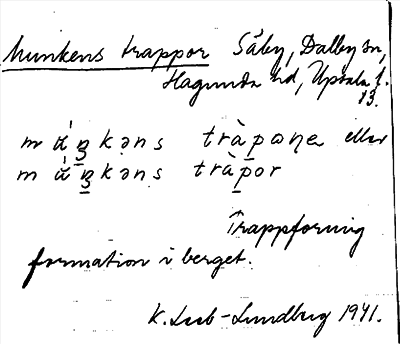 Munkens trappor Säby, Dalby sn,
Hagunda hd, Upsala l.
13.
mú̹ŋkəns tràpωṇa eller
mú̹ŋkəns tràpor
Trappforming
formation i berget.
K. Leeb-Lundberg 1941.